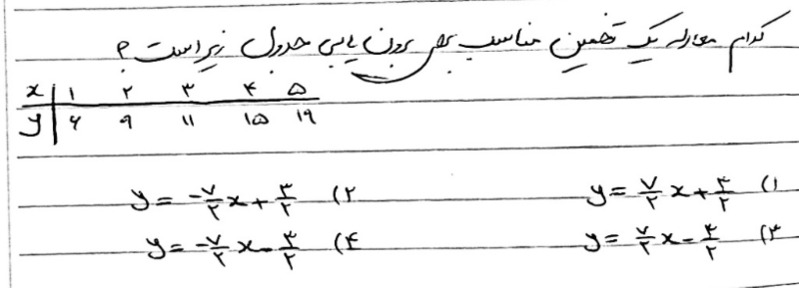 کدام معادله یک تخمین مناسب برای برون یابی جدول زیر است؟
x | ۱ ۲ ۳ ۴ ۵
y | ۶ ۹ ۱۱ ۱۵ ۱۹
۱) y = ۷/۲ x + ۳/۲ ۲) y = -۷/۲ x + ۳/۲
۳) y = ۷/۲ x - ۳/۲ ۴) y = -۷/۲ x - ۳/۲